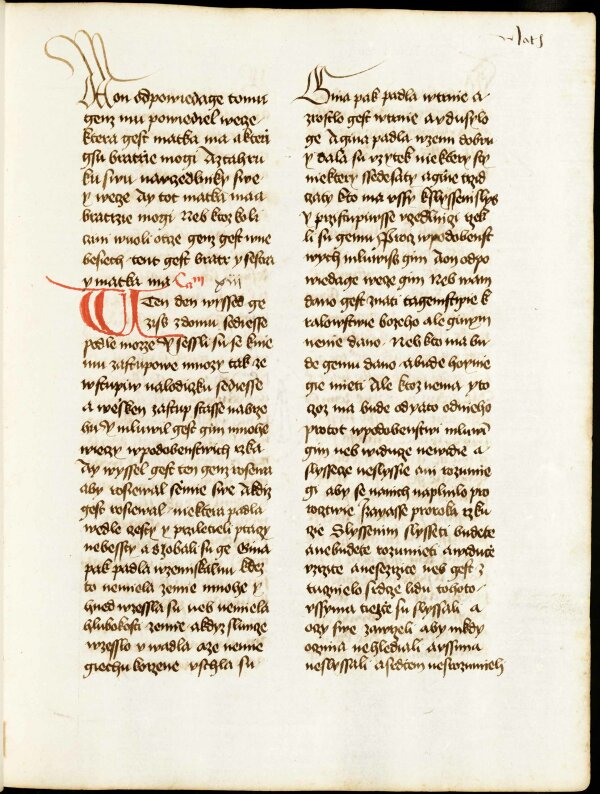 Mat
A on odpowiedage tomu
genz mu powiediel wece
ktera gest matka ma a kteri
gsu bratrie mogi A ztah ru
ku swu na vczedlniky swe
y wece Ay tot matka ma a
bratrzie mogi Neb ktoz koli
cini wuoli otce genz gest w ne
besiech tent gest bratr y sestra
y matka ma Cam xiii
W Ten den wyssed ge
ziss z domu sediesse
podle morze Y sessli su se knie
mu zastupowe mnozy tak ze
wstupiw na lodiczku sediesse
a wessken zastup stasse na brze
hu Y mluwil gest gim mnohe
wieczy w podobenstwich rzka
Ay wyssel gest ten genz rosiewa
aby rosiewal semie swe A kdiz
gest rosiewal niektera padla
wedle cesty y przileteli ptaczy
nebessty a szobali su ge Gina
pak padla w zemi skalnu kdez
to nemiela zemie mnohe y
hned wzessla su neb nemiela
hlubokosti zemie a kdyz slunce
wzesslo y wadla a ze nemie
giechu korzene vschla su
Gina pak padla w trnie a
zrostlo gest trnie a vdusylo
ge A gina padla w zemi dobru
y dala su vzytek niektery sty
niektery ssedesaty a gine trzid
czaty kto ma vssy k slyssseni slyss
Y przistupiwsse vczedlnici rzek
li su gemu Procz w podobenst
wych mluwiss gim A on odpo
wiedage wece gim Neb wam
dano gest znati tagemstwie k
ralowstwie bozeho ale gim
nenie dano Neb kto ma bu
de gemu dano a bude hoynie
gie mieti Ale ktoz nema y to
coz ma bude odyato od nieho
Protot w podobenstwi mluwi
gim neb widuce newidie a
slyssece neslyssie ani rozumie
gi aby se na nich naplnilo pro
roctwie Izayasse proroka rzku
cie Slyssenim slysseti budete
a nebudete rozumieti a widuce
vzrzite a nevzrzite neb gest z
tucznielo srdce lidu tohoto
vssyma tiezcie su slyssali a
oczy swe zawrzeli aby nikdy
oczima nehledieli a vssima
neslyssali a srdcem nesrozumieli